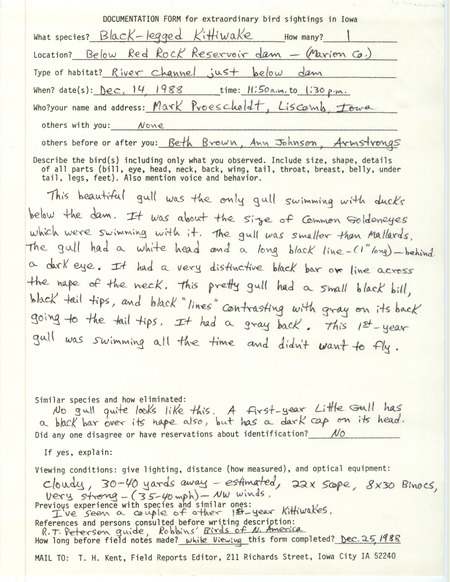 DOCUMENTATION FORM for extraordinary bird sightings in Iowa
What species? Black-legged Kittiwake How many? 1
Location? Below Red Rock Reservoir dam - (Marion Co.)
Type of habitat? River channel just below dam
When? date(s): Dec. 14, 1988 time: 11:50a.m. to 1:30 p.m.
Who?your name and address: Mark Proescholdt, Liscomb, Iowa
others with you: None
others before or after you: Beth Brown, Ann Johnson, Armstrongs
Describe the bird(s) including only what you observed. Include size, shape, details
of all parts (bill, eye, head, neck, back, wing, tail, throat, breast, belly, under
tail, legs, feet). Also mention voice and behavior.
This beautiful gull was the only gull swimming with ducks
below the dam. It was about the size of Common Goldeneyes
which were swimming with it. The gull was smaller than Mallards.
The gull had a white head and a long black line - (1" long) - behind
a dark eye. It had a very distinctive black bar or line across
the nape of the neck. This pretty gull had a small black bill,
black tail tips, and black "lines" contrasting with gray on its back
going to the tail tips. It had a gray back. This 1st-year
gull was swimming all the time and didn't want to fly.
Similar species and how eliminated:
No gull quite looks like this. A first-year Little Gull has
a black bar over its nape also, but has a dark cap on its head.
Did any one disagree or have reservations about identification? No
If yes, explain:
Viewing conditions: give lighting, distance (how measured), and optical equipment:
Cloudy, 30-40 yards away - estimated, 22x scope, 8x30 Binocs,
very strong - (35-40 mph) - NW winds.
Previous experience with species and similar ones:
I've seen a couple of other 1st-year Kittiwakes.
References and persons consulted before writing description:
R.T. Peterson guide, Robbins' Birds of N. America
How long before field notes made? while viewing this form completed? Dec. 25, 1988
MAIL TO: T. H. Kent, Field Reports Editor, 211 Richards Street, Iowa City IA 52240